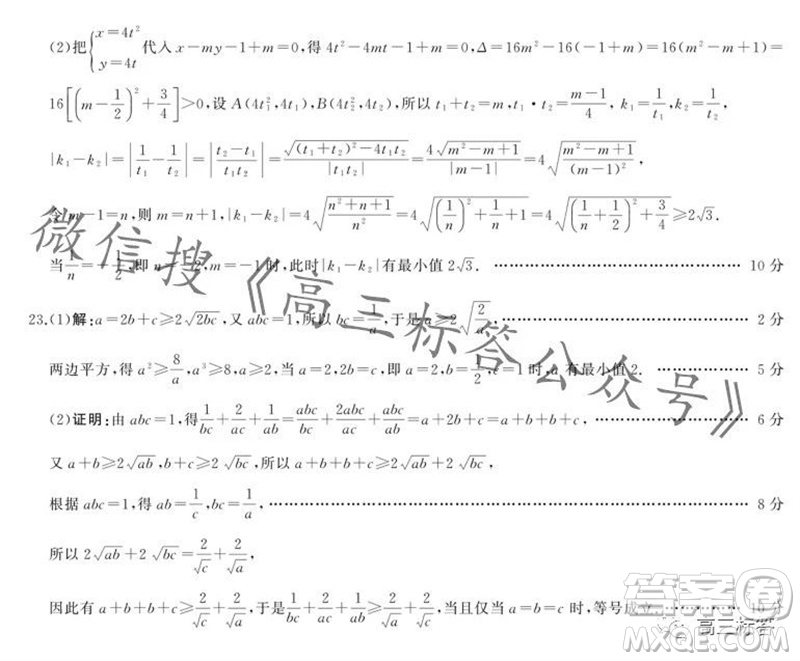 (2)把{x=4t², y=4t 代入 x-my-1+m=0,得 4t²-4mt-1+m=0,Δ=16m²-16(-1+m)=16(m²-m+1)=
16[(m-1/2)²+3/4]>0,设 A(4t₁²,4t₁),B(4t₂²,4t₂),所以 t₁+t₂=m,t₁·t₂=(m-1)/4, k₁=1/t₁,k₂=1/t₂,
|k₁-k₂|=|1/t₁-1/t₂|=|(t₂-t₁)/(t₁t₂)|=√((t₁+t₂)²-4t₁t₂)/|t₁t₂|=4√(m²-m+1)/|m-1|=4√((m²-m+1)/(m-1)²),
令 m-1=n,则 m=n+1,|k₁-k₂|=4√((n²+n+1)/n²)=4√((1/n)²+1/n+1)=4√((1/n+1/2)²+3/4)≥2√3.
当1/n=-1/2,即 n=-2,m=-1时,此时|k₁-k₂|有最小值 2√3. ………… 10 分
23.(1)解:a=2b+c≥2√(2bc),又 abc=1,所以 bc=1/a,于是 a≥2√(2/a), ………… 2 分
两边平方,得 a²≥8/a,a³≥8,a≥2,当 a=2,即 a=2,b=1/2,c=1时,a 有最小值 2. ………… 5 分
(2)证明:由 abc=1,得 1/bc+2/ac+1/ab=abc/bc+2abc/ac+abc/ab=a+2b+c=a+b+b+c, ………… 6 分
又 a+b≥2√ab,b+c≥2√bc,所以 a+b+b+c≥2√ab+2√bc,
根据 abc=1,得 ab=1/c,bc=1/a, ………… 8 分
所以 2√ab+2√bc=2/√c+2/√a,
因此有 a+b+b+c≥2/√c+2/√a,当且仅当 a=b=c 时,等号成立. ………… 10 分
微信搜《高三标答公众号》
答案圈
MXQE.COM
高三标答